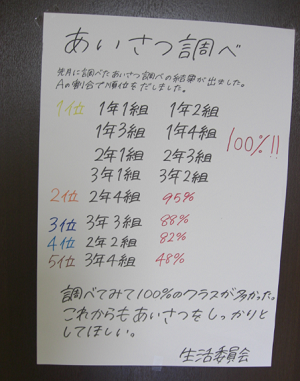 あいさつ調べ
先月に調べたあいさつ調べの結果が出ました。
Aの割合で順位をだしました。
1位 1年1組 1年2組
1年3組 1年4組 100%!!
2年1組 2年3組
3年1組 3年2組
2位 2年4組 95%
3位 3年3組 88%
4位 2年2組 82%
5位 3年4組 48%
調べてみて100%のクラスが多かった。
これからもあいさつをしっかりと
してほしい。
生活委員会